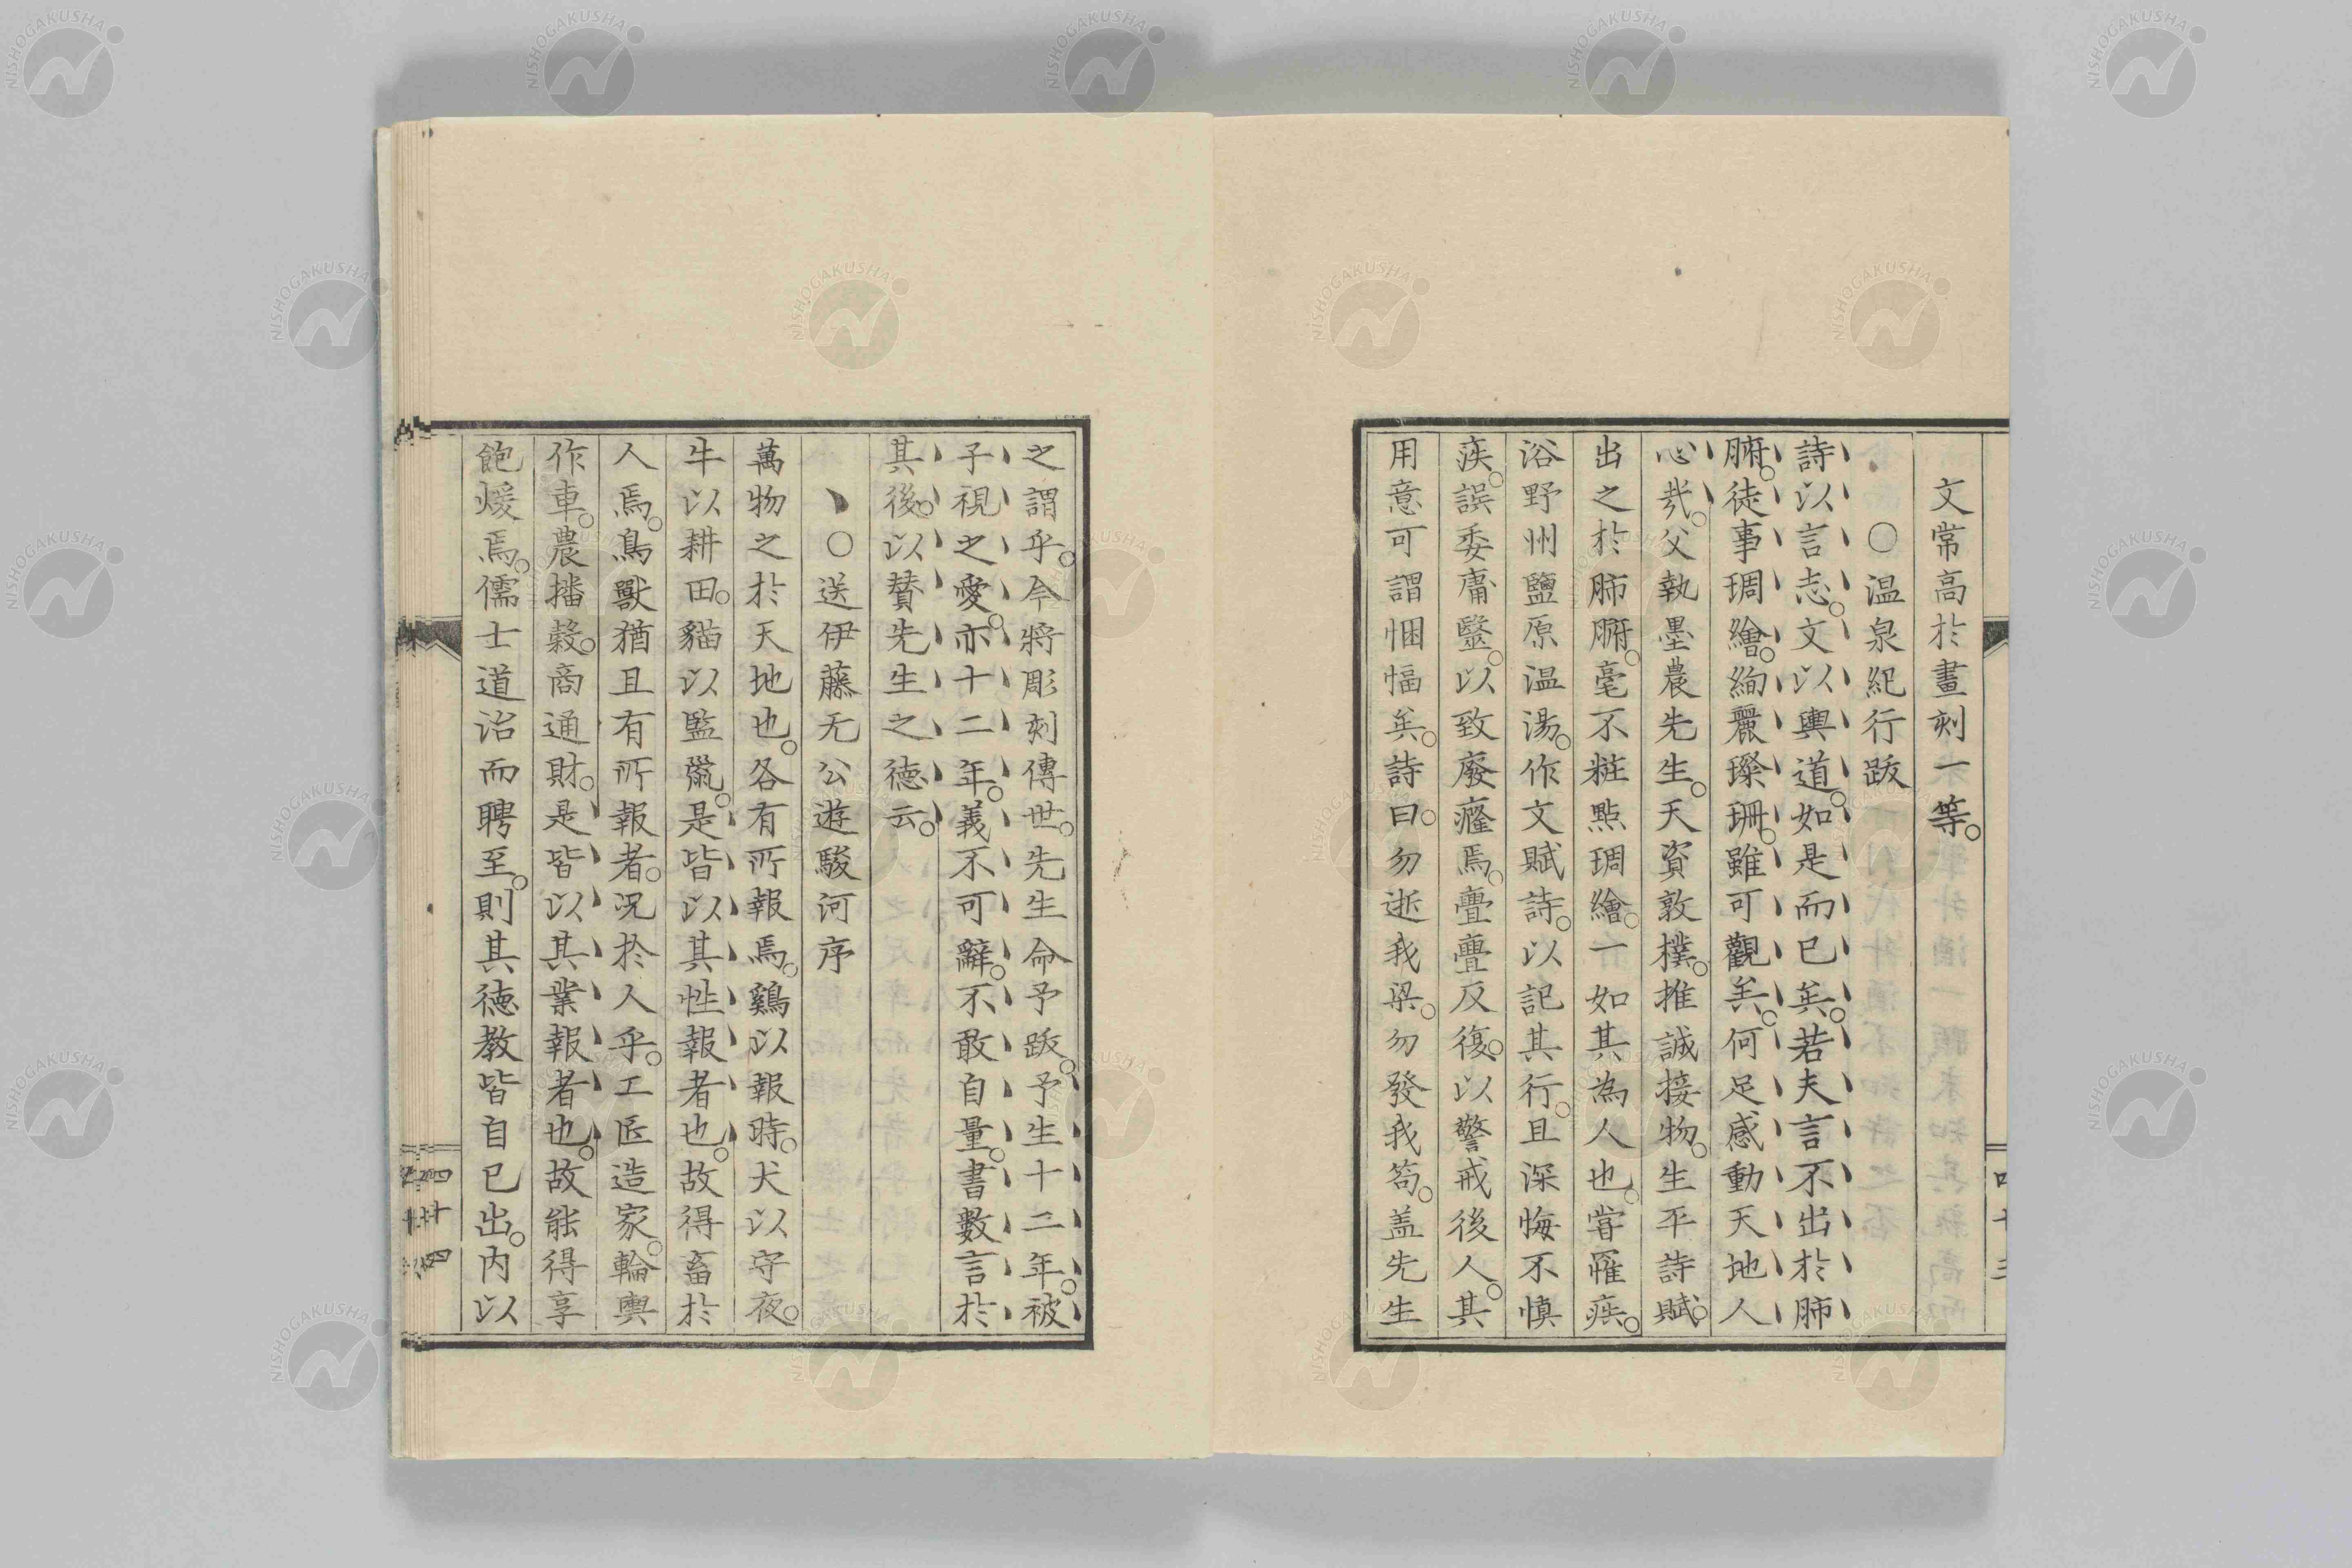 文常高於畫刻一等。
○温泉紀行跋
詩以言志。文以輿道。如是而已矣。若夫言不出於肺
腑。徒事琱繪。絢麗璨珊。雖可觀矣。何足感動天地人
心哉。父執墨農先生。天資敦樸。推誠接物。生平詩賦。
出之於肺腑。毫不粧點琱繪。一如其為人也。甞罹疾。
浴野州鹽原温湯。作文賦詩。以記其行。且深悔不慎
疾。誤委庸毉。以致廢癃焉。亹亹反復。以警戒後人。其
用意可謂悃愊矣。詩曰。勿逝我梁。勿發我笱。盖先生
之謂乎。今將彫刻傳世。先生命予跋。予生十二年。被
子視之愛。亦十二年。義不可辭。不敢自量。書數言於
其後。以賛先生之德云。
○送伊藤无公遊駿河序
萬物之於天地也。各有所報焉。鷄以報時。犬以守夜。
牛以耕田。貓以監鼠。是皆以其性報者也。故得畜於
人焉。鳥獸猶且有所報者。况於人乎。工匠造家。輪輿
作車。農播穀。商通財。是皆以其業報者也。故能得享
飽煖焉。儒士道治而聘至。則其德教皆自已出。内以
四十四
NISHOGAKUSHA